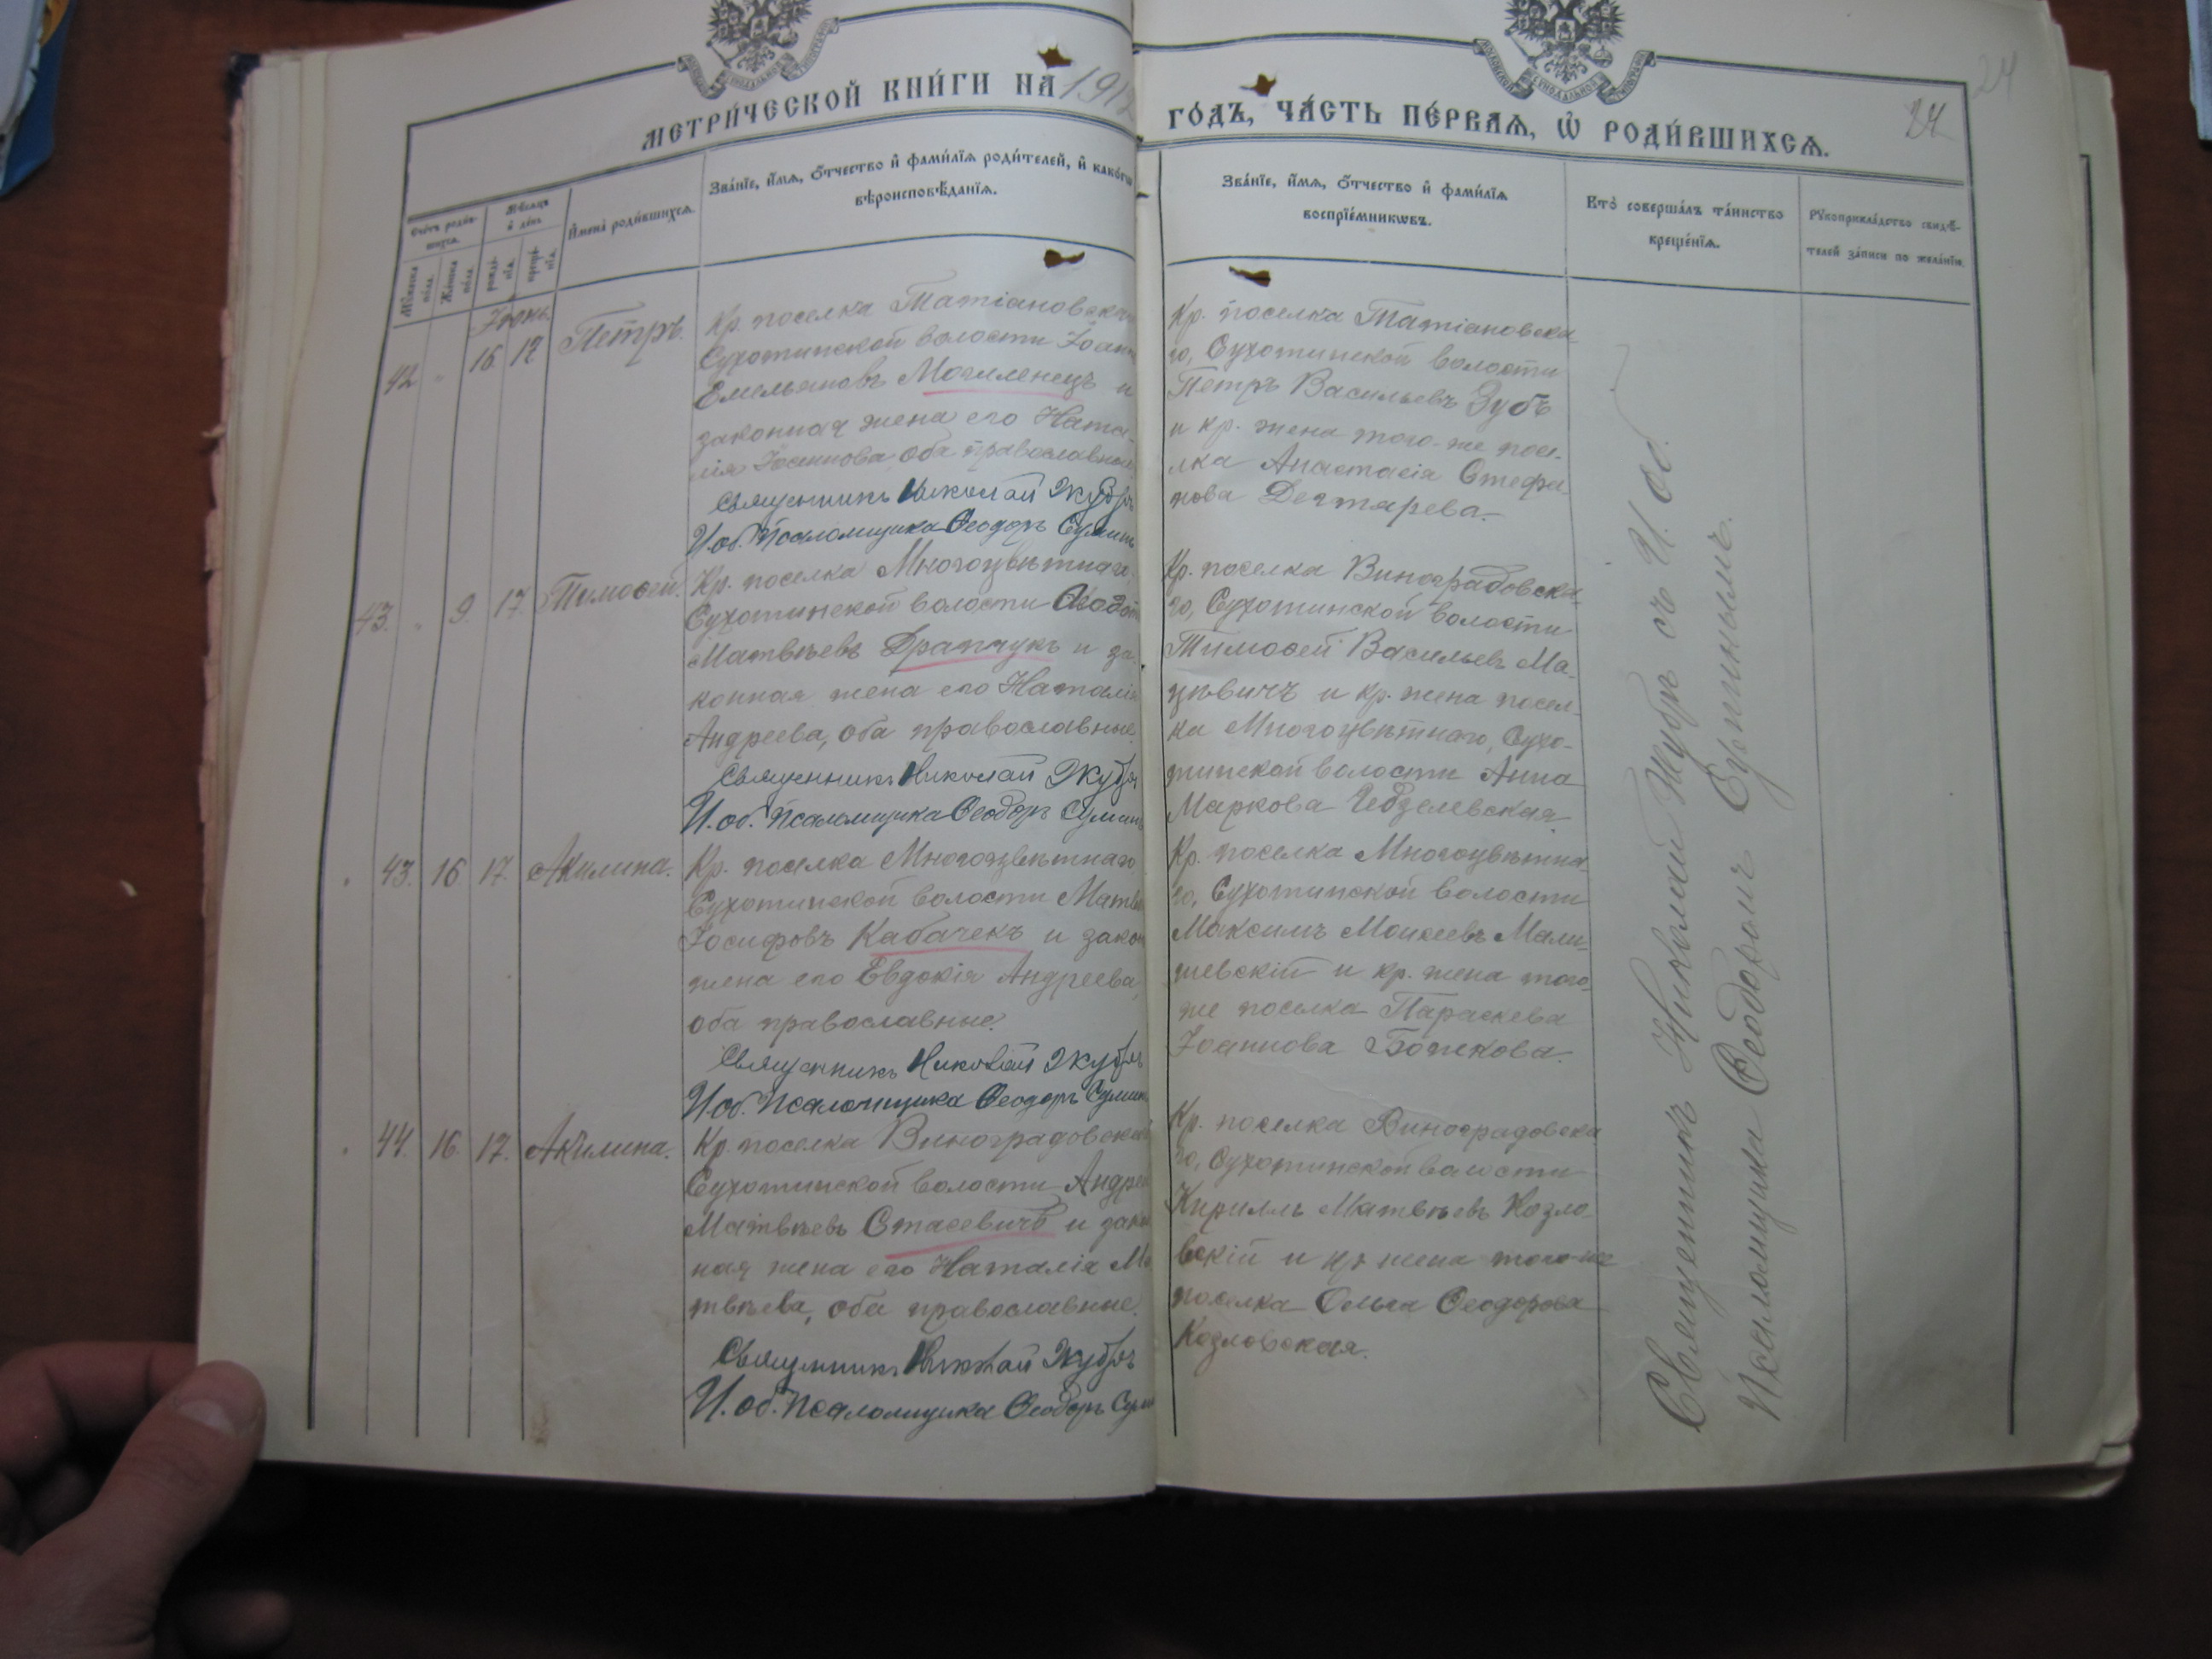 МЕТРИ́ЧЕСКОЙ КНИ́ГИ НА 1912
ГО́ДЪ, ЧА́СТЬ ПЕ́РВАѦ, Ѡ҆ РОДИ́ВШИХСѦ.
24
24
Сче́тъ роди́в-
шихсѧ.
Мѣ́сѧцъ
и҆ де́нь
И҆мена̀ роди́вшихсѧ.
Зва́нїе, и҆́мѧ, ѻ҆́тчество и҆ фами́лїѧ роди́телей, и҆ како́гѡ
вѣроисповѣ́данїѧ.
Зва́нїе, и҆́мѧ, ѻ҆́тчество и҆ фами́лїѧ
воспрїе́мникѡвъ.
Кто̀ соверша́лъ та́инство
креще́нїѧ.
Рꙋкоприкла́дство свидѣ́-
телей за́писи по жела́нїю.
Мꙋ́жеска
по́ла.
Же́нска
по́ла.
рожде́-
нїѧ.
креще́-
нїѧ.
Іюнь.
42 " 16 17. Петръ.
Кр. поселка Татіановскаго
Сухотинской волости Іоаннъ
Емельяновъ Могиленецъ и
законная жена его Ната-
лія Іоаннова оба православные
Священникъ Николай Якубъ
И. об. Псаломщика Ѳеодоръ Сулинъ
Кр. поселка Татіановска-
го, Сухотинской волости
Петръ Васильевъ Зубъ
и кр. жена того-же посе-
лка Анастасія Стефа-
нова Дегтярева.
43. " 9. 17. Тимоѳей.
Кр. поселка Многоцвѣтнаго,
Сухотинской волости
Матвѣевъ Драпчукъ и за-
конная жена его Наталія
Андреева, оба православные.
Священникъ Николай
И. об. Псаломщика Ѳеодоръ
Кр. поселка Виноградовска-
го, Сухотинской волости
Тимоѳей Васильевъ Ма-
цѣвичъ и кр. жена посел-
ка Многоцвѣтнаго, Сухо-
тинской волости Анна
Маркова
" 43. 16 17. Акилина.
Кр. поселка Многоцвѣтнаго
Сухотинской волости Матвѣй
Іосифовъ Кабачекъ и закон
жена его Евдокія Андреева,
оба православные.
Священникъ Николай
И. об. Псаломщика Ѳеодоръ
Кр. поселка Многоцвѣтна-
го, Сухотинской волости
Максимъ Моисеевъ Мали-
шевскій и кр. жена того-
же поселка Параскева
Іоаннова Божкова.
" 44. 16. 17. Акилина.
Кр. поселка Виноградовскаго
Сухотинской волости Андрей
Матвѣевъ Стасевичъ и закон
ная жена его Наталія Ма
твѣева, оба православные.
Священникъ Николай
И. об. Псаломщика Ѳеодоръ
Кр. поселка Виноградовска
го, Сухотинской волости
Кириллъ Матвѣевъ Козло-
вскій и кр. жена того-же
поселка Ольга Ѳеодорова
Козловская.
Священникъ Николай съ И. об.
Псаломщика Ѳеодоромъ